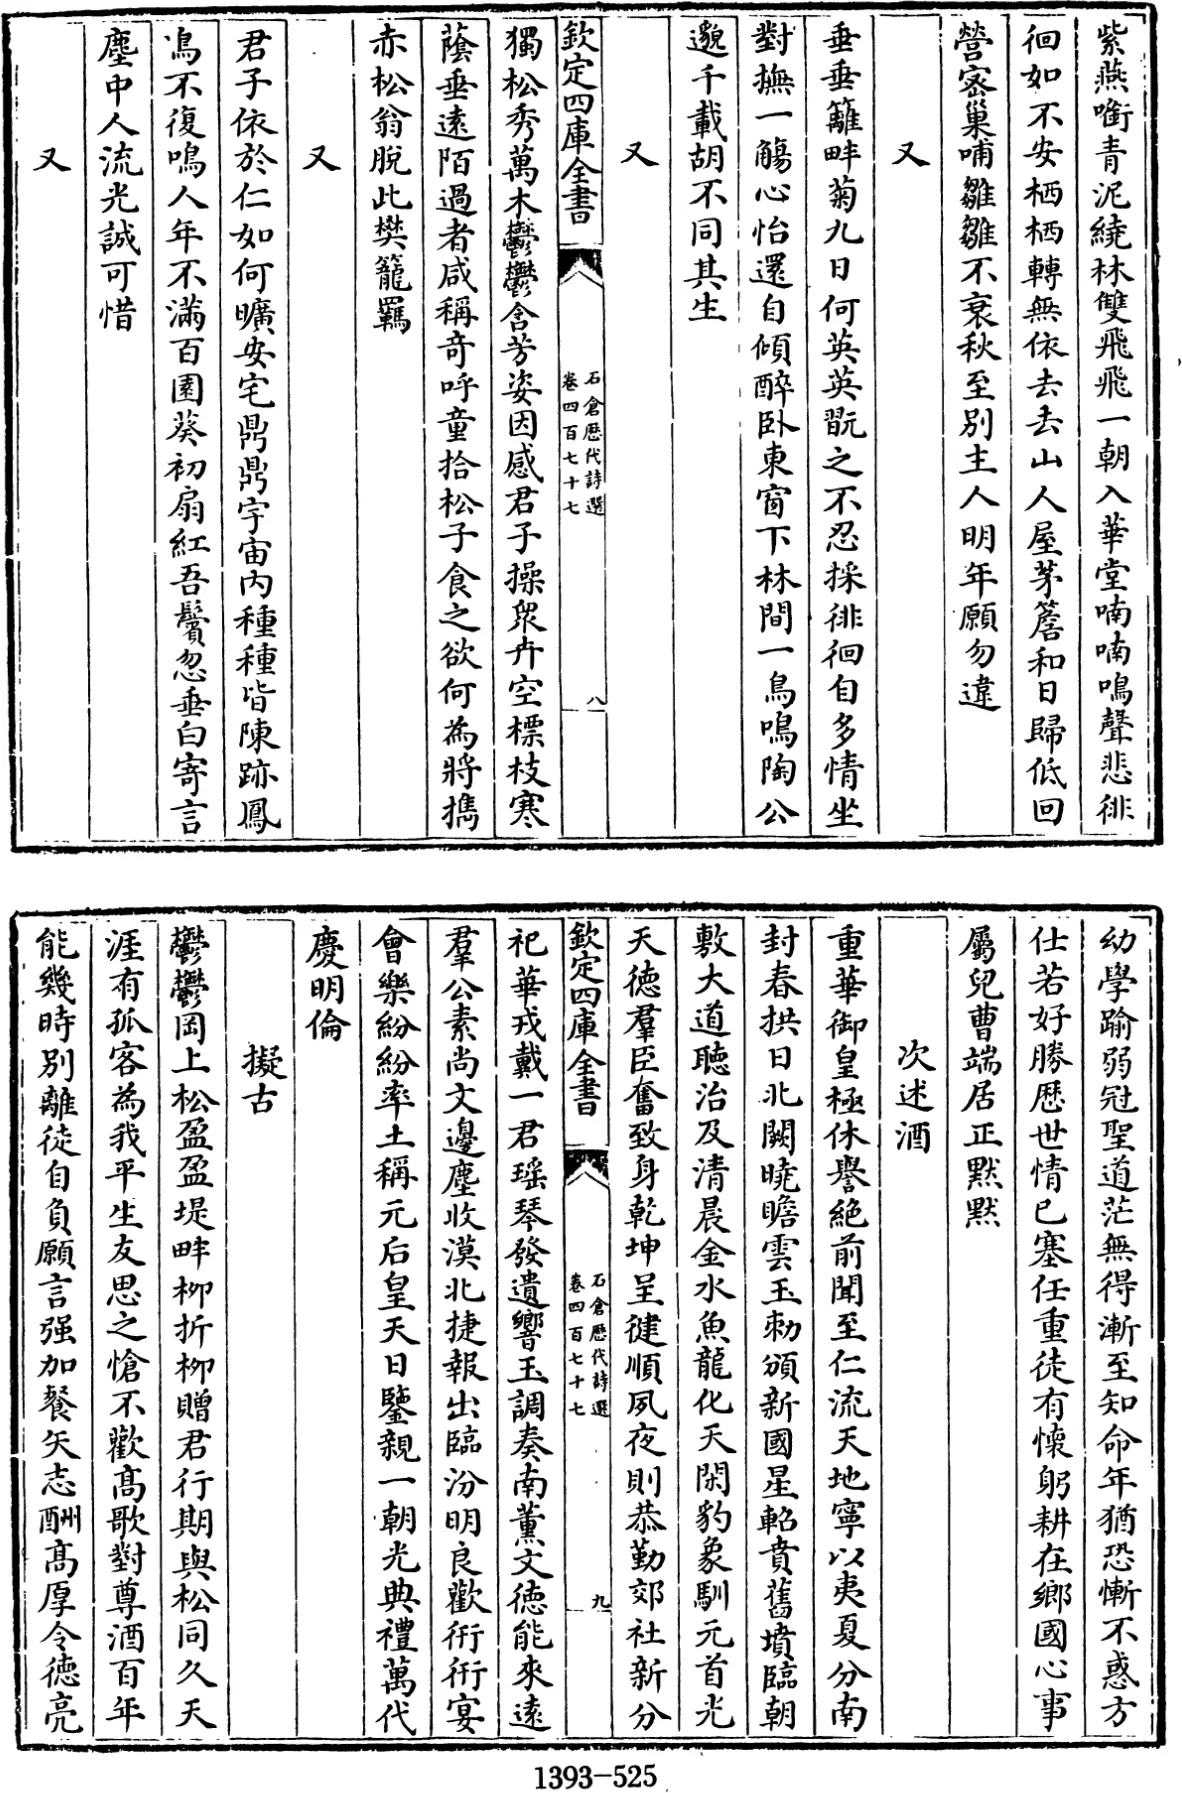 紫燕啣青泥繞林雙飛飛一朝入華堂喃喃鳴聲悲徘
徊如不安栖栖轉無依去去山人屋茅簷和日歸低回
營密巢哺雛雛不衰秋至別主人明年願勿違
又
垂垂籬畔菊九日何英英翫之不忍採徘徊自多情坐
對撫一觴心怡還自傾醉卧東窗下林間一鳥鳴陶公
邈千載胡不同其生
又
欽定四庫全書
石倉歷代詩選
卷四百七十七
八
獨松秀萬木鬱鬱含芳姿因感君子操衆卉空標枝寒
蔭垂遠陌過者咸稱奇呼童拾松子食之欲何為將攜
赤松翁脫此樊籠羈
又
君子依於仁如何曠安宅鼎鼎宇宙内種種皆陳跡鳳
鳥不復鳴人年不滿百園葵初扇紅吾鬢忽垂白寄言
塵中人流光誠可惜
又
幼學踰弱冠聖道茫無得漸至知命年猶恐慚不惑方
仕若好勝歷世情已塞任重徒有懷躬耕在鄉國心事
屬兒曹端居正默默
次述酒
重華御皇極休譽絶前聞至仁流天地寧以夷夏分南
封春拱日北闕曉瞻雲玉勅頒新國星軺賁舊墳臨朝
敷大道聽治及清晨金水魚龍化天閑豹象馴元首光
天德羣臣奮致身乾坤呈健順夙夜則恭勤郊社新分
欽定四庫全書
石倉歷代詩選
卷四百七十七
九
祀華戎戴一君瑶琴發遺響玉調奏南薰文德能來遠
羣公素尚文邊塵收漠北捷報出臨汾明良歡衎衎宴
會樂紛紛率土稱元后皇天日鑒親一朝光典禮萬代
慶明倫
擬古
鬱鬱岡上松盈盈堤畔柳折柳贈君行期與松同久天
涯有孤客為我平生友思之愴不歡髙歌對尊酒百年
能幾時别離徒自負願言强加餐矢志酬髙厚令德亮
1393-525